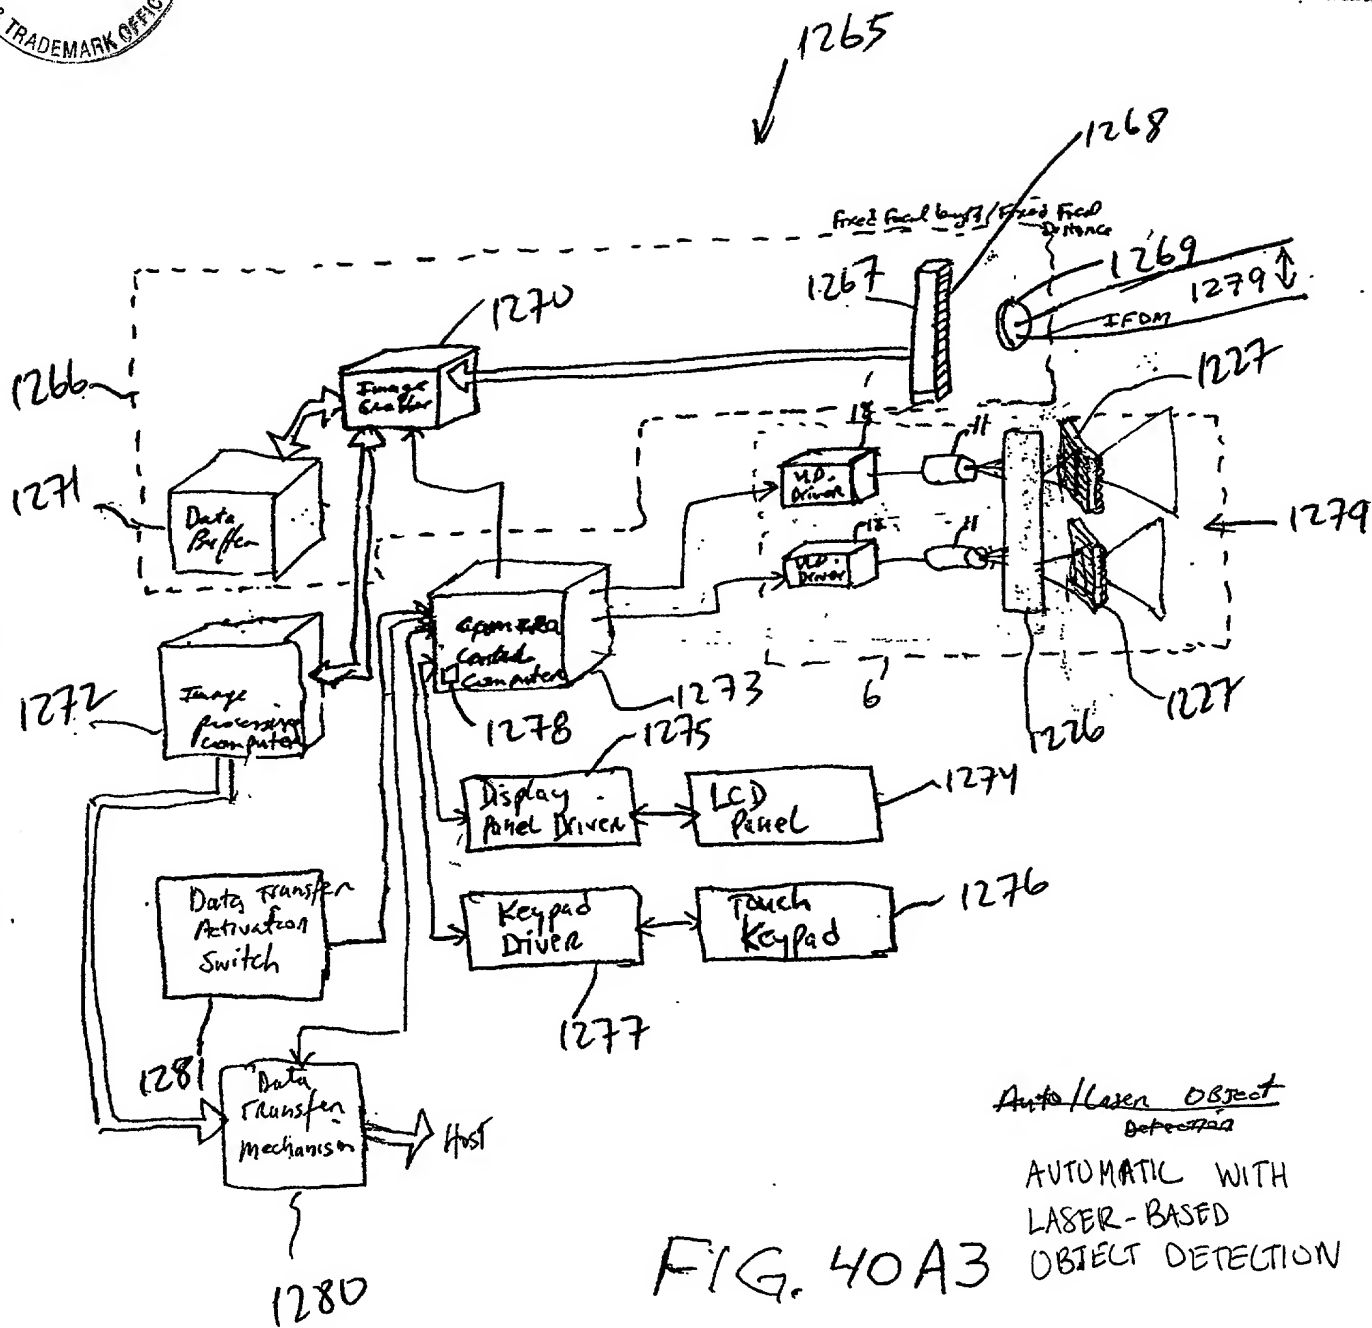 TRADEMARK OFFIC
1265
1268
Fixed Focal Length / Fixed Focal
Distance
1267
1269
1279
IFDM
1270
1266
Image
Grabber
1227
18
11
VLD
Driver
1271
Data
Buffer
1279
18
11
VLD
Driver
Camera
Control
Computer
1273
6
1226
1227
1272
Image
processing
computer
1278
1275
Display
Panel Driver
LCD
Panel
1274
Data Transfer
Activation
Switch
Keypad
Driver
Touch
Keypad
1276
1277
1281
Data
Transfer
Mechanism
Host
1280
Auto/Laser Object
Detection
AUTOMATIC WITH
LASER-BASED
OBJECT DETECTION
FIG. 40A3